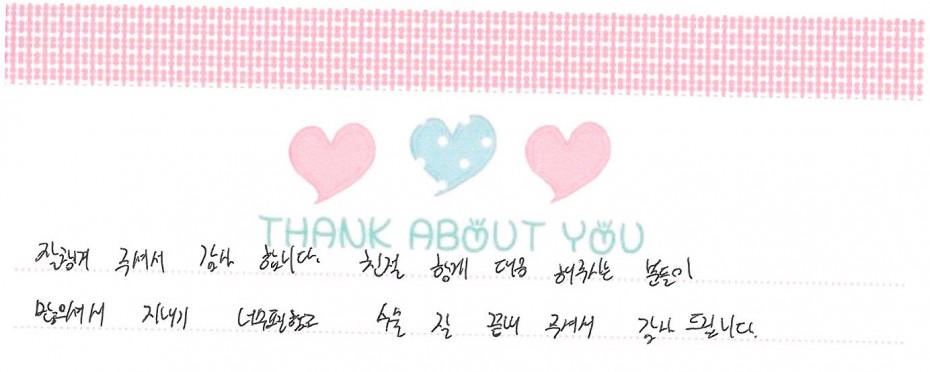 THANK ABOUT YOU
주셔서 감사 합니다. 친절 하게 대응 해주시는 분들이
많으셔서 지내기 너무편했고 수술 잘 끝내 주셔서 감사 드립니다.